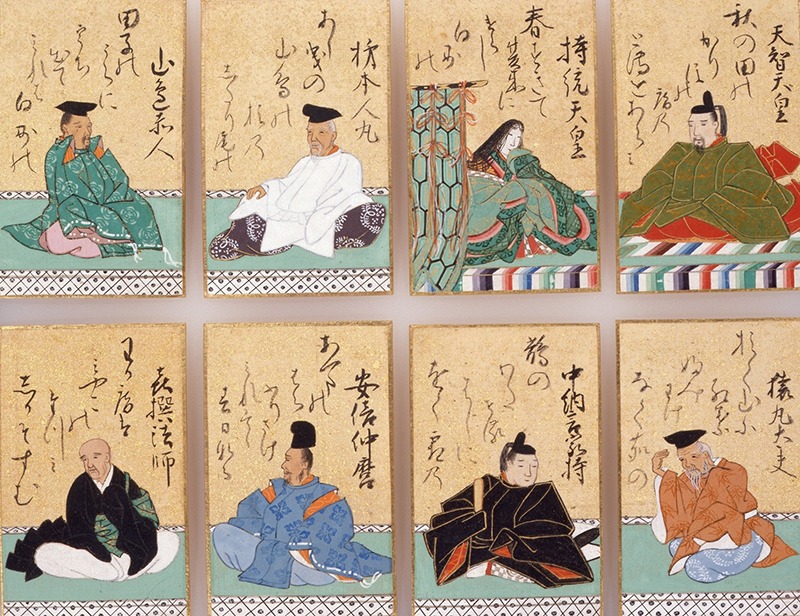 天智天皇
秋の田の
かり
ほの
庵乃
とまをあらミ
持統天皇
春すきて
夏来に
けらし
白妙の
柿本人丸
あし曳の
山鳥の
尾乃
したり尾の
山邊赤人
田子の
うらに
うち
出て
みれは
白妙の
猿丸大夫
おく山に
紅葉
ふみ
わけ
なく鹿の
中納言家持
鵲の
わたせる
はしに
をく霜乃
安倍仲麿
あまの
はら
ふりさけ
みれは
春日なる
喜撰法師
わか庵は
みやこの
たつミ
しかそすむ